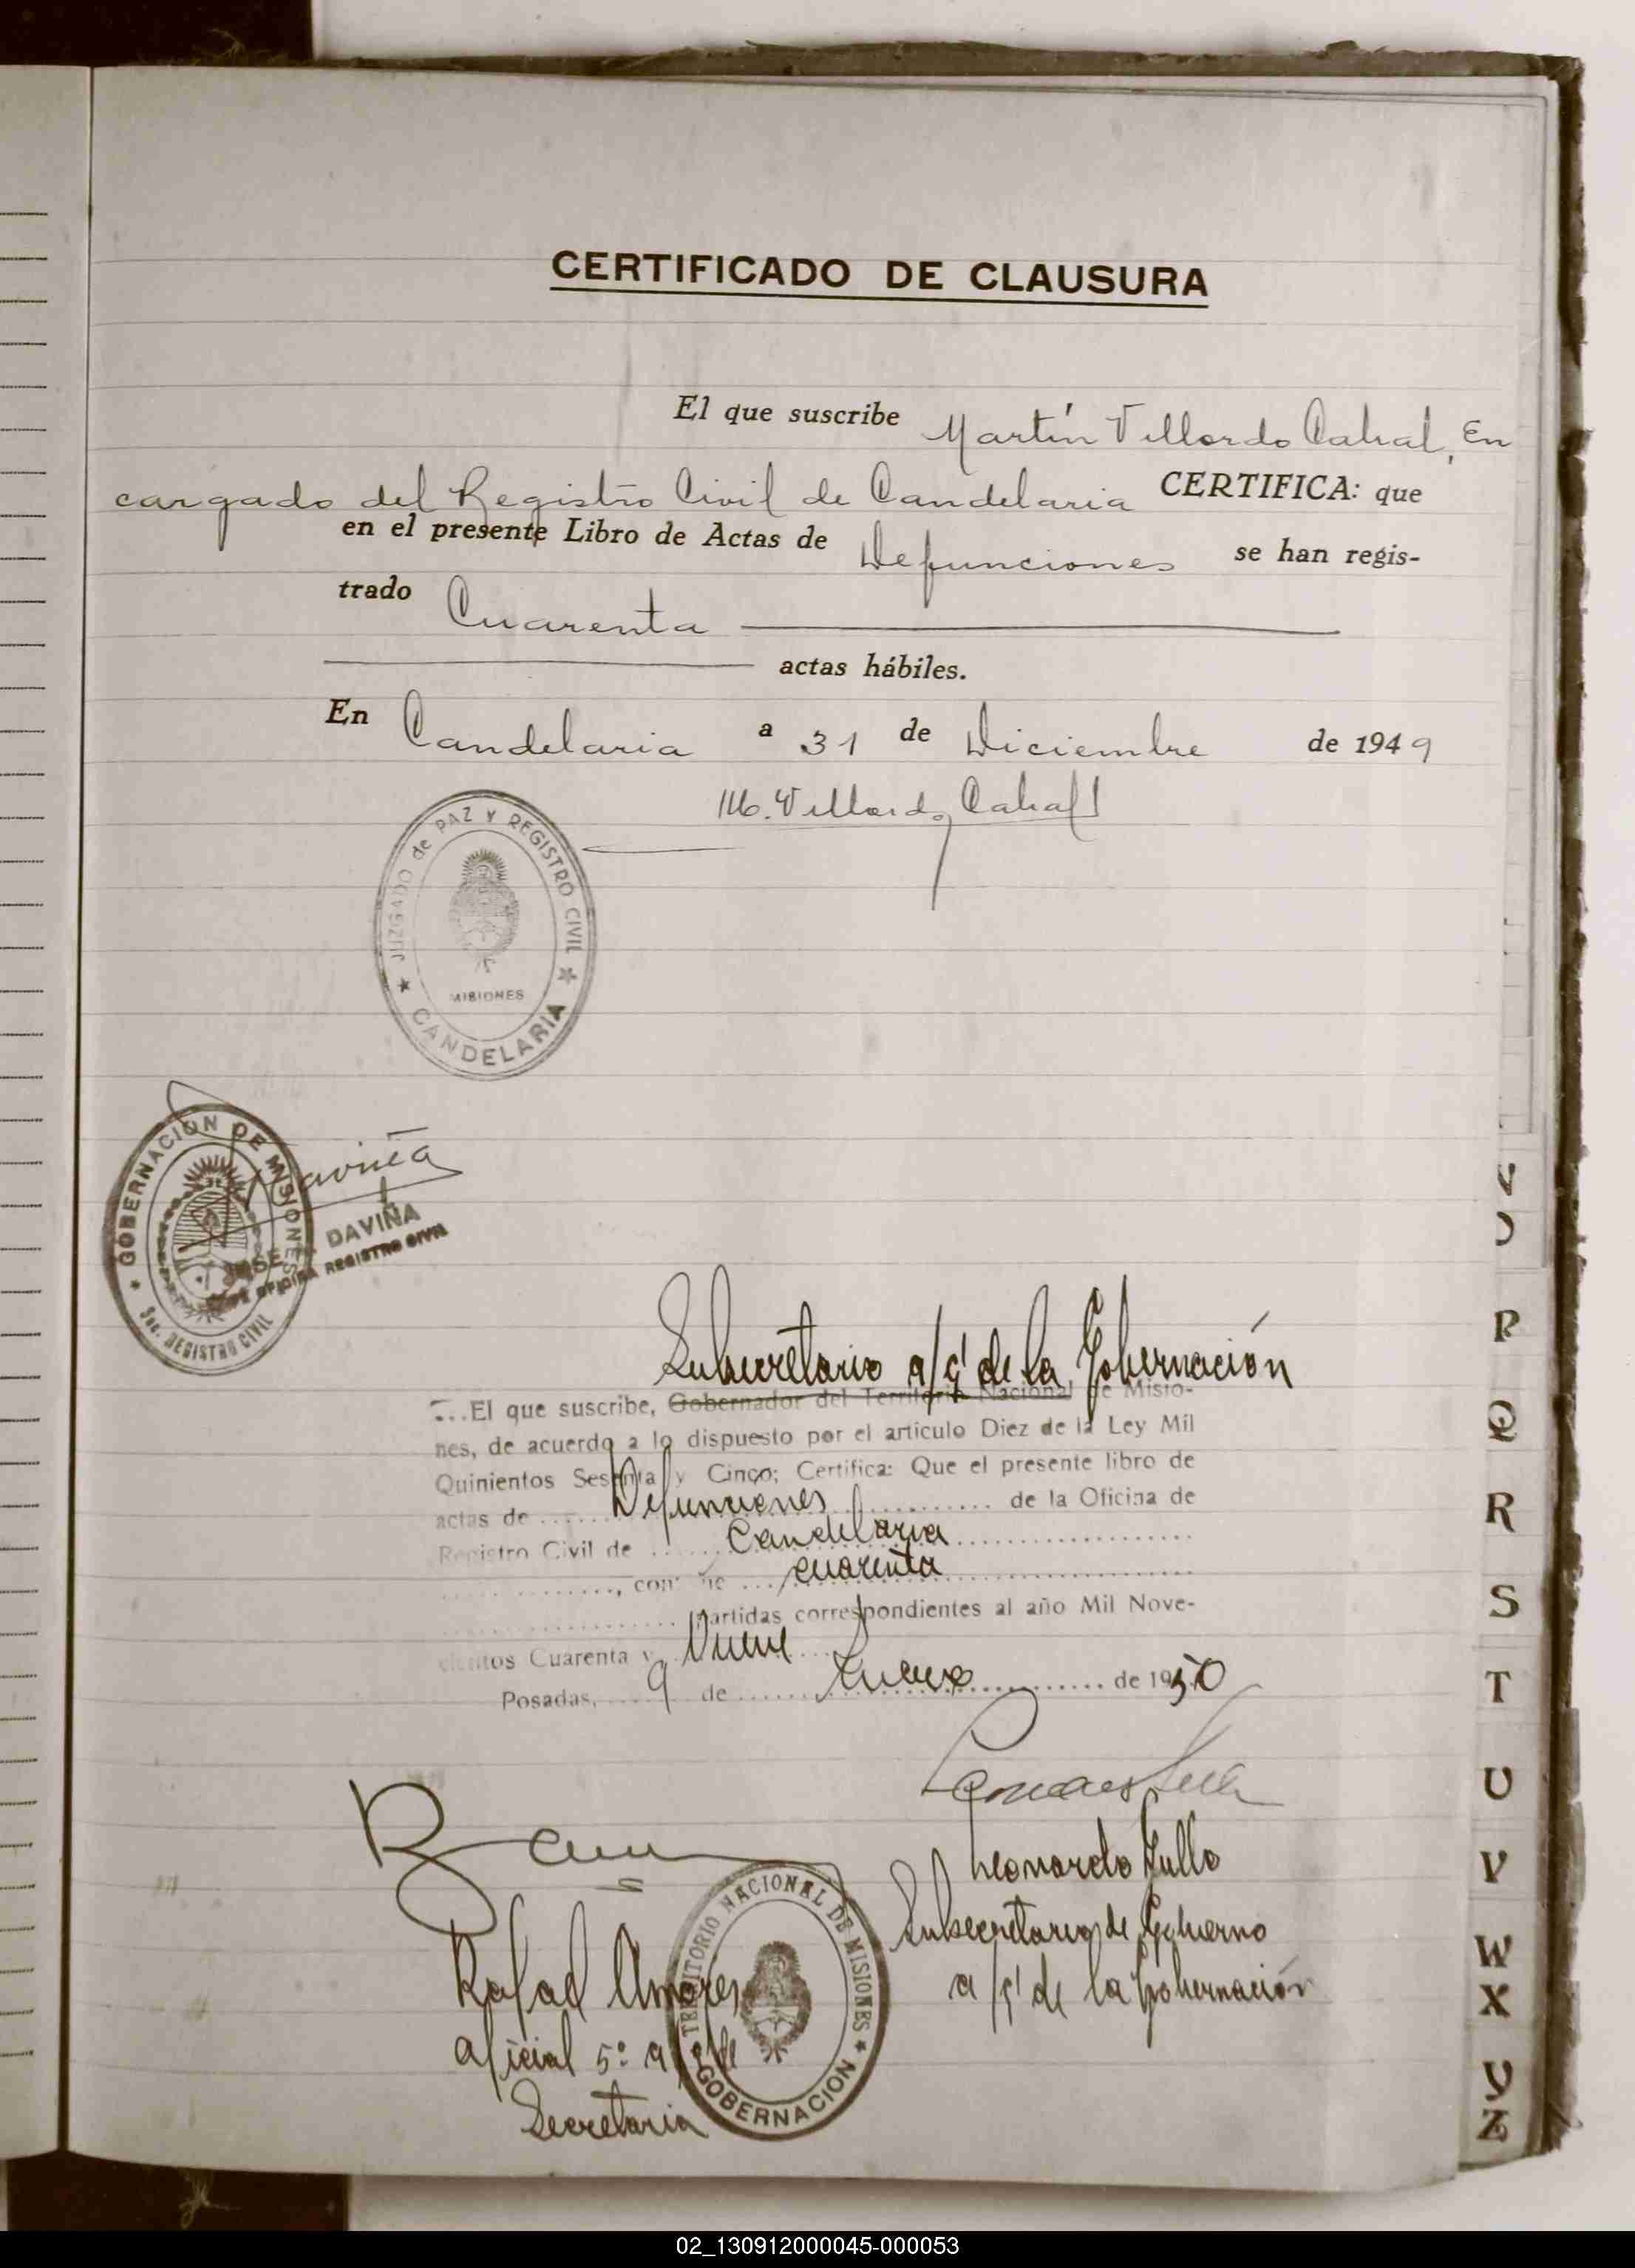 CERTIFICADO DE CLAUSURA
El que suscribe Martín Villordo Cabral, En
cargado del Registro Civil de Candelaria CERTIFICA: que
en el presente Libro de Actas de Defunciones se han regis-
trado Cuarenta
actas hábiles.
En Candelaria a 31 de Diciembre de 1949
M. Villordo Cabral
JUZGADO de PAZ Y REGISTRO CIVIL
MISIONES
CANDELARIA
GOBERNACION DE MISIONES
Sec. REGISTRO CIVIL
Daviña
JOSE DAVIÑA
OFICINA REGISTRO CIVIL
Subsecretario a/c de la Gobernación
...El que suscribe, Gobernador del Territorio Nacional de Misio-
nes, de acuerdo a lo dispuesto por el articulo Diez de la Ley Mil
Quinientos Sesenta y Cinco; Certifica: Que el presente libro de
actas de Defunciones de la Oficina de
Registro Civil de Candelaria
, contiene cuarenta
partidas correspondientes al año Mil Nove-
cientos Cuarenta y Nueve
Posadas, 9 de Enero de 1950
Leonardo Tullo
Subsecretario de Gobierno
a/c de la Gobernación
Rafael Amores
Oficial 5º a/c de
Secretaria
TERRITORIO NACIONAL DE MISIONES
GOBERNACION
P
Q
R
S
T
U
V
W
X
Y
Z
02_130912000045-000053